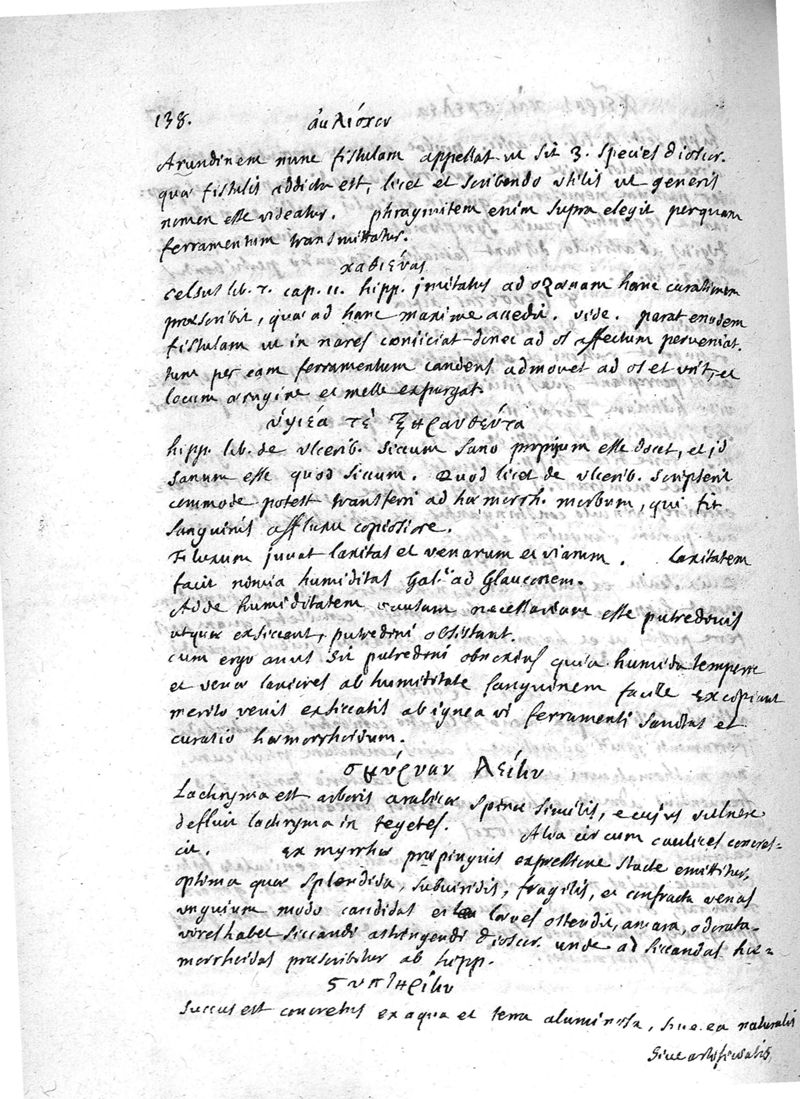 138. αυλίσκον
Arundinem nunc fistulam appellat ut sit 3. species dioscor.
quæ fistulis addicta est, licet et scribendo utilis ut generis
nomen esse videatur. phragmitem enim supra elegit per quam
ferramentum transmittatur.
καθιένας
Celsus lib. 7. cap. 11. hipp. imitatus ad ozænam hanc curationem
præscribit, quæ ad hanc maxime accedit. vide. parat enodem
fistulam ut in nares coniiciat donec ad os affectum perveniat.
tunc per eam ferramentum candens admovet ad os et urit, et
locum ærugine et melle expurgat.
ὑγιέα τὲ ξηρανθέντα
hipp. lib. de ulcerib. siccum sano propius esse docet, et id
sanum esse quod siccum. Quod licet de ulcerib. scripserit
commode potest transferri ad hæmorrh. morbum, qui fit
sanguinis affluxu copiosiore.
Fluxum juvat laxitas et venarum et viarum. Laxitatem
facit nimia humiditas Gal. ad Glauconem.
Adde humiditatem causam necessariam esse putredinis
atque exsiccent, putredini obsistant.
cum ergo anus sit putredini obnoxius quia humida tempere
et venæ laxiores ab humiditate sanguinem facile excipiant
merito venit exsiccatis ab ignea vi ferramenti sanitas et
curatio hæmorrhoidum.
σμύρναν λείην
Lachryma est arboris arabicæ spinæ similis, e cujus vulnere
defluit lachryma in tegetes. Alia circum caulices concres=
cit. Ex myrrhæ præpinguis expressione stacte emittitur,
optima quæ splendida, subviridis, fragilis, et confracta venas
unguium modo candidas et læves ostendit, amara, odorata.
vires habet siccandi astringendi dioscor. unde ad siccandas hæ=
morrhoidas præscribitur ab hipp.
στυπτηρίην
Succus est concretus ex aqua et terra aluminosa, sive ea naturalis
sive artificialis